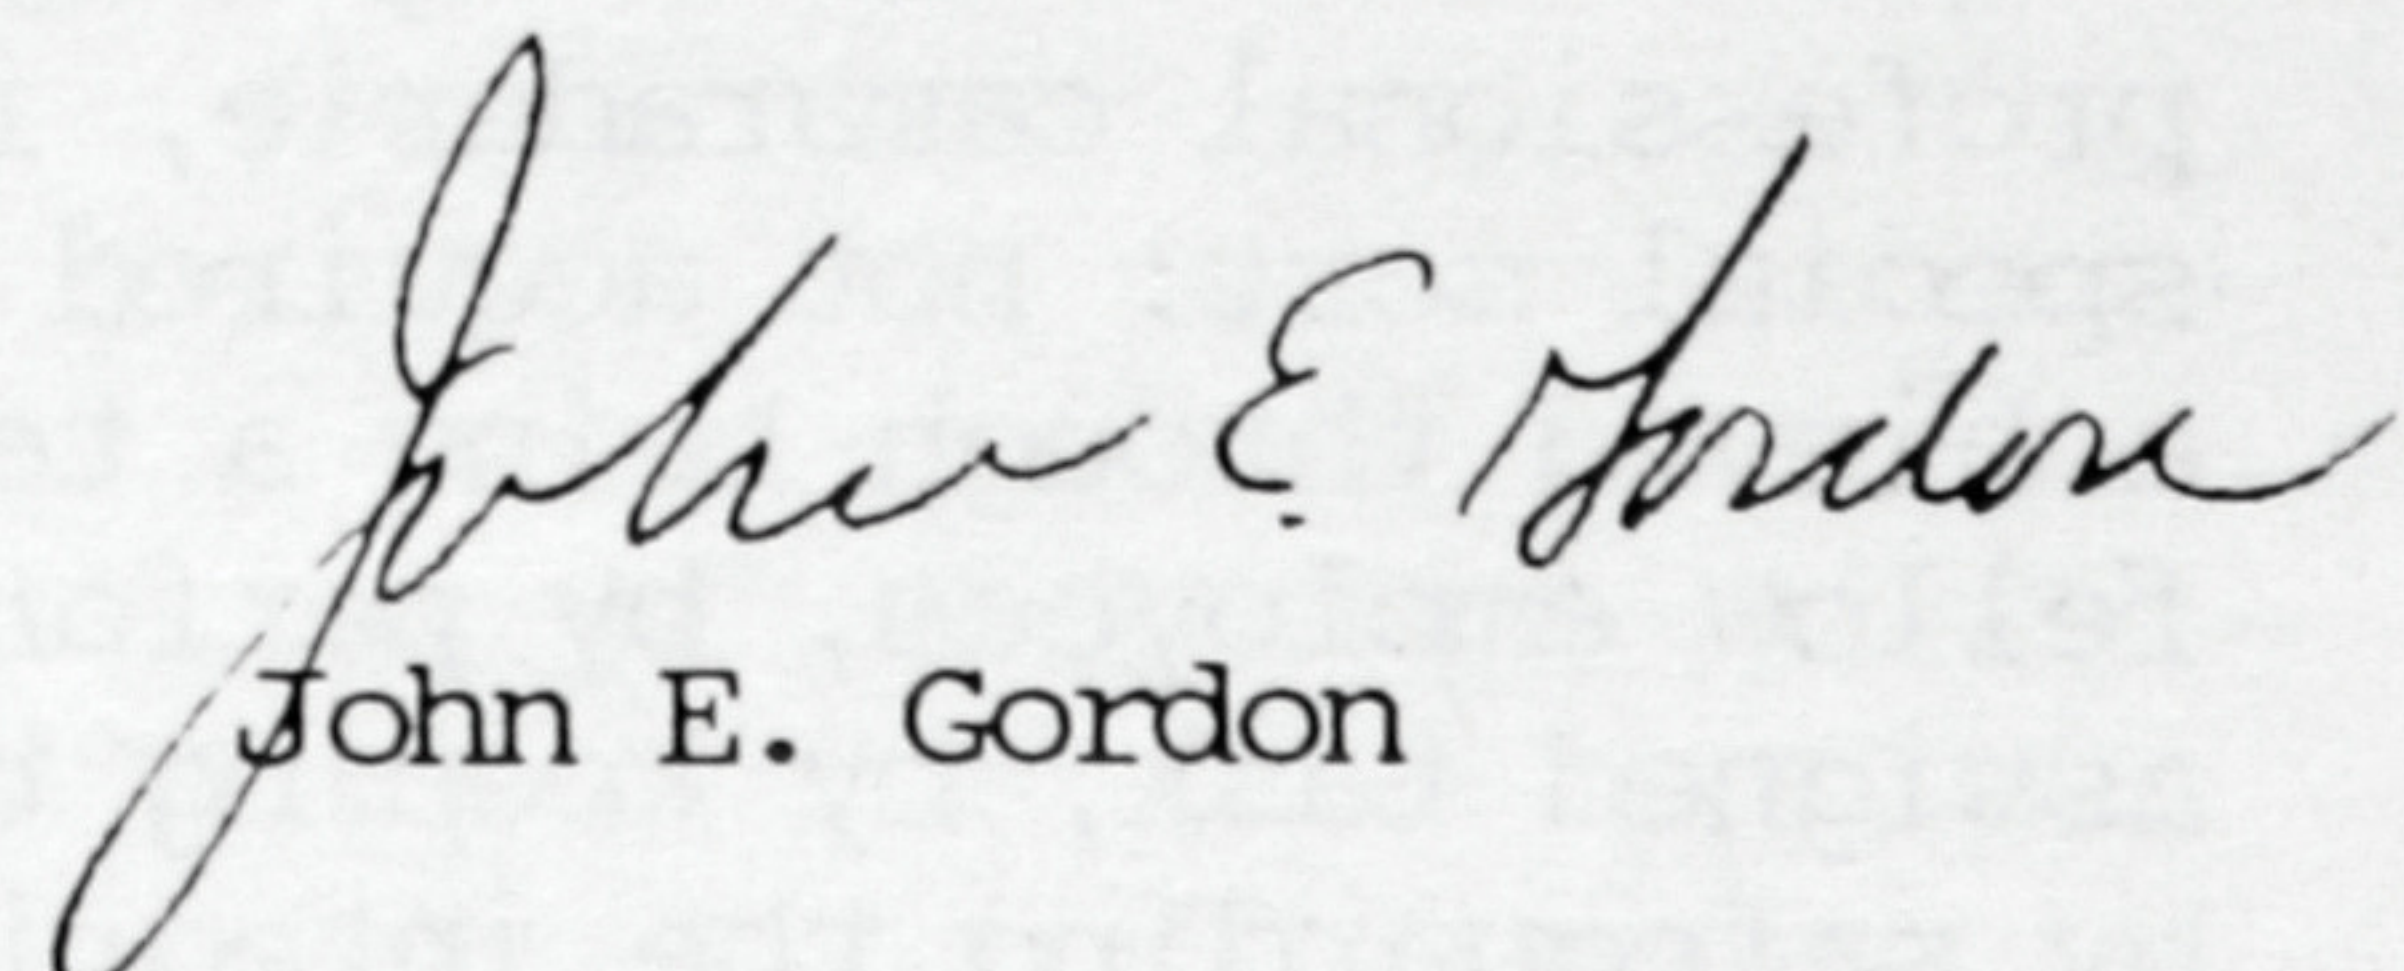 John E. Gordon
John E. Gordon